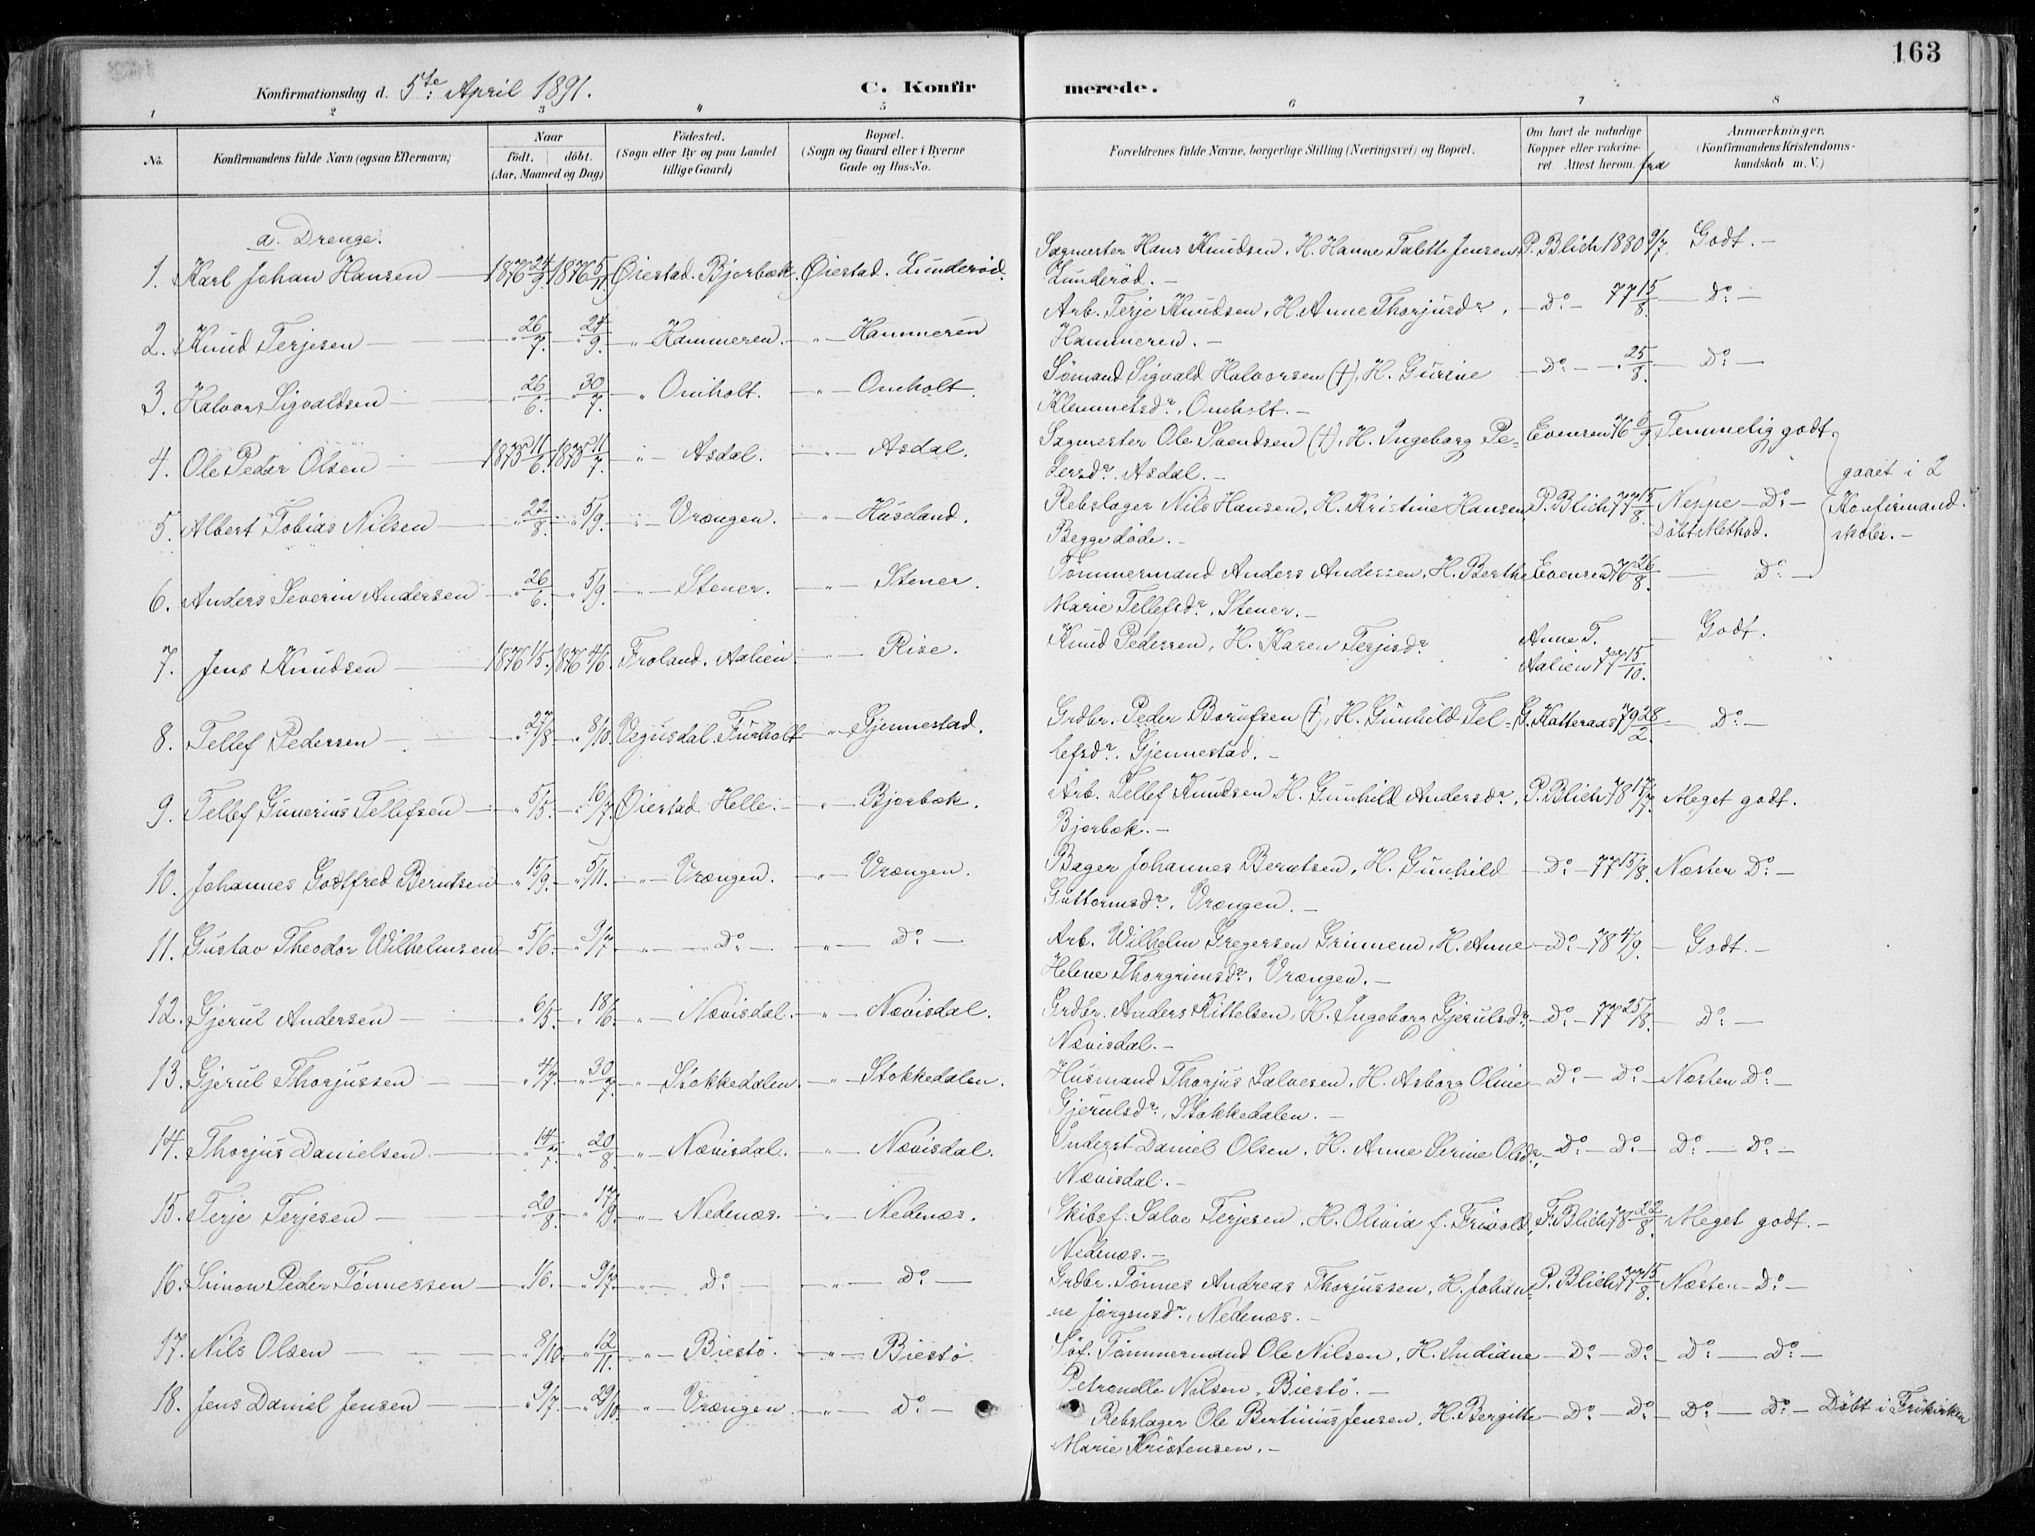 163
Konfirmationsdag d. 5te April 1891.
C. Konfirmerede.
1 2 3 4 5 6 7 8
No.
Konfirmandens fulde Navn (ogsaa Efternavn)
Naar
födt. döbt.
(Aar, Maaned og Dag)
Födested.
(Sogn eller By og paa Landet
tillige Gaard)
Bopæl.
(Sogn og Gaard eller i Byerne
Gade og Hus-No.
Forældrenes fulde Navne, borgerlige Stilling (Næringsvei) og Bopæl.
Om havt de naturlige
Kopper eller vakvine-
ret Attest herom. fra
Anmærkninger.
(Konfirmandens Kristendoms-
kundskab m. V.)
a. Drenge.
1. Karl Johan Hansen — 1876 24/9. 1876 5/11. Øiestad. Bjorbæk. Øiestad. Lunderöd. Sagmester Hans Knudsen, H. Hanne Talette Jensen, P. Blich 1880 9/7. Godt. —
Lunderöd. —
2. Knud Terjesen — " 26/7. " 24/9. " — Hammeren. — " — Hammeren Arb. Terje Knudsen, H. Anne Thorjusdr, — Do — 77 15/8. — Do —
Hammeren. —
3. Halvor Sigvaldsen — " 26/6. " 30/7. " Omholt. — " — Omholt. Sömand Sigvald Halvorsen (†), H. Gurine — Do — " 25/8. — Do —
Klemmetsdr, Omholt. —
4. Ole Peder Olsen — 1875 11/6. 1875 11/7. " — Asdal. — " — Asdal. Sagmester Ole Svendsen (†), H. Ingeborg Pe- Evensen 76 6/9. Temmelig godt.
dersdr, Asdal. —
gaaet i 2
Konfirmand.
skoler. —
5. Albert Tobias Nilsen — " 22/8. " 5/9. " — Vrængen. " — Huseland. Rebslager Nils Hansen, H. Kristine Hansen, P. Blich 77 15/8. Neppe — Do —
Begge döde. — Döbt Method.
6. Anders Severin Andersen — " 26/6. " 5/9. — " — Stener. " — Stener. Tömmermand Anders Andersen, H. Berthe Evensen 76 26/8. — Do —
Marie Tellefsdr, Stener. —
7. Jens Knudsen — 1876 1/5. 1876 4/6. Froland. Aalien — " — Rise. Knud Pedersen, H. Karen Terjesdr Anne T. — Godt.
Aalien 77 15/10.
8. Tellef Pedersen — " 27/8 " 8/10. Vegusdal. Furholt " — Gjennestad. Grdbr. Peder Borufsen (†), H. Gunhild Tel- G. Katteraas 79 28/2. — Do —
lefsdr. Gjennestad. —
9. Tellef Gunerius Tellefsen — " 5/5. " 16/7 Øiestad. Helle. — " — Bjorbæk. Arb. Tellef Knudsen H. Gunhild Andersdr, P. Blich 78 17/7. Meget godt.
Bjorbæk. —
10. Johannes Godtfred Berntsen " 15/9. " 5/11. " — Vrængen. " — Vrængen. Bager Johannes Berntsen, H. Gunhild — Do — 77 15/8. Næsten Do —
Guttormsdr, Vrængen. —
11. Gustav Theodor Wilhelmsen " 5/6. " 9/7 " — Do — " — Do — Arb. Wilhelm Gregersen Grimnem, H. Anne — Do — 78 4/9. — Godt. —
Helene Thorgrimsdr, Vrængen. —
12. Gjerul Andersen — " 6/5. " 18/6. " — Nævisdal. — " — Nævisdal. Grdbr. Anders Kittelsen, H. Ingeborg Gjerulsdr — Do — 77 25/8. — Do —
Nævisdal. —
13. Gjerul Thorjussen — " 4/7. " 30/7. " — Stokkedalen. — " — Stokkedalen. Husmand Thorjus Salvesen, H. Asborg Oline — Do — Do — Næsten Do —
Gjerulsdr, Stokkedalen. —
14. Thorjus Danielsen — " 14/7. " 20/8. " — Nævisdal. — " — Nævisdal. Inderst Daniel Olsen, H. Anne Serine Olsdr, — Do — Do — Do — Do —
Nævisdal. —
15. Terje Terjesen — " 20/8. " 17/9. " — Nedenæs. — " — Nedenæs. Skibsf. Salve Terjesen, H. Olivia f. Trivold, F. Blich 78 22/8. Meget godt. —
Nedenæs. —
16. Simon Peder Tönnessen — " 1/6. " 9/7. " — Do — " — Do — Grdbr. Tönnes Andreas Thorjussen, H. Johan- P. Blich 77 15/8. Næsten — Do —
ne Jörgensdr, Nedenæs. —
17. Nils Olsen — " 8/10. " 12/11. " — Biestö. — " — Biestö Söf. Tömmermand Ole Nilsen, H. Indiane — Do — Do — Do — Do —
Petronelle Nilsen, Biestö. —
18. Jens Daniel Jensen — " 9/7. " 29/10. " — Vrængen. — " — Do — Rebslager Ole Bertinius Jensen, H. Bergitte — Do — Do — Do — Do — Döbt i Frikirken
Marie Kristensen. —